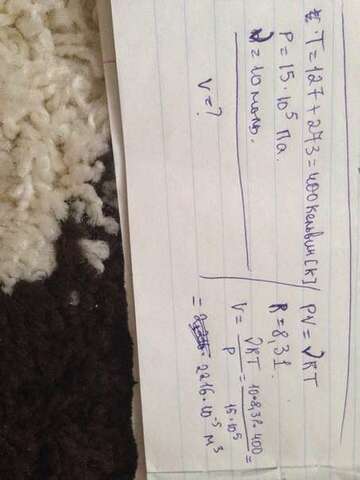 T = 127 + 273 = 400 кельвин [к]
P = 15 · 10⁵ Па.
ν = 10 моль.
V = ?
PV = νRT
R = 8,31.
V = νRT / P = 10 · 8,31 · 400 / 15 · 10⁵ =
= 2216 · 10⁻⁵ м³